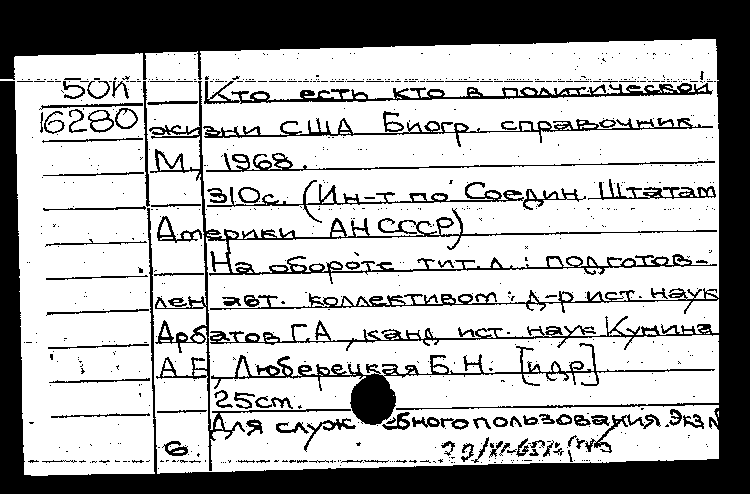 50К Кто есть кто в политической
16280 жизни США Биогр. справочник.
М., 1968.
310с. (Ин-т по Соедин. Штатам
Америки АН СССР)
На обороте тит. л.: подготов-
лен авт. коллективом: д-р ист. наук
Арбатов Г.А, канд ист. наук Кунина
А Е, Люберецкая Б. Н. [и др.]
25cm.
Для служ ебного пользования. Экз №
6.